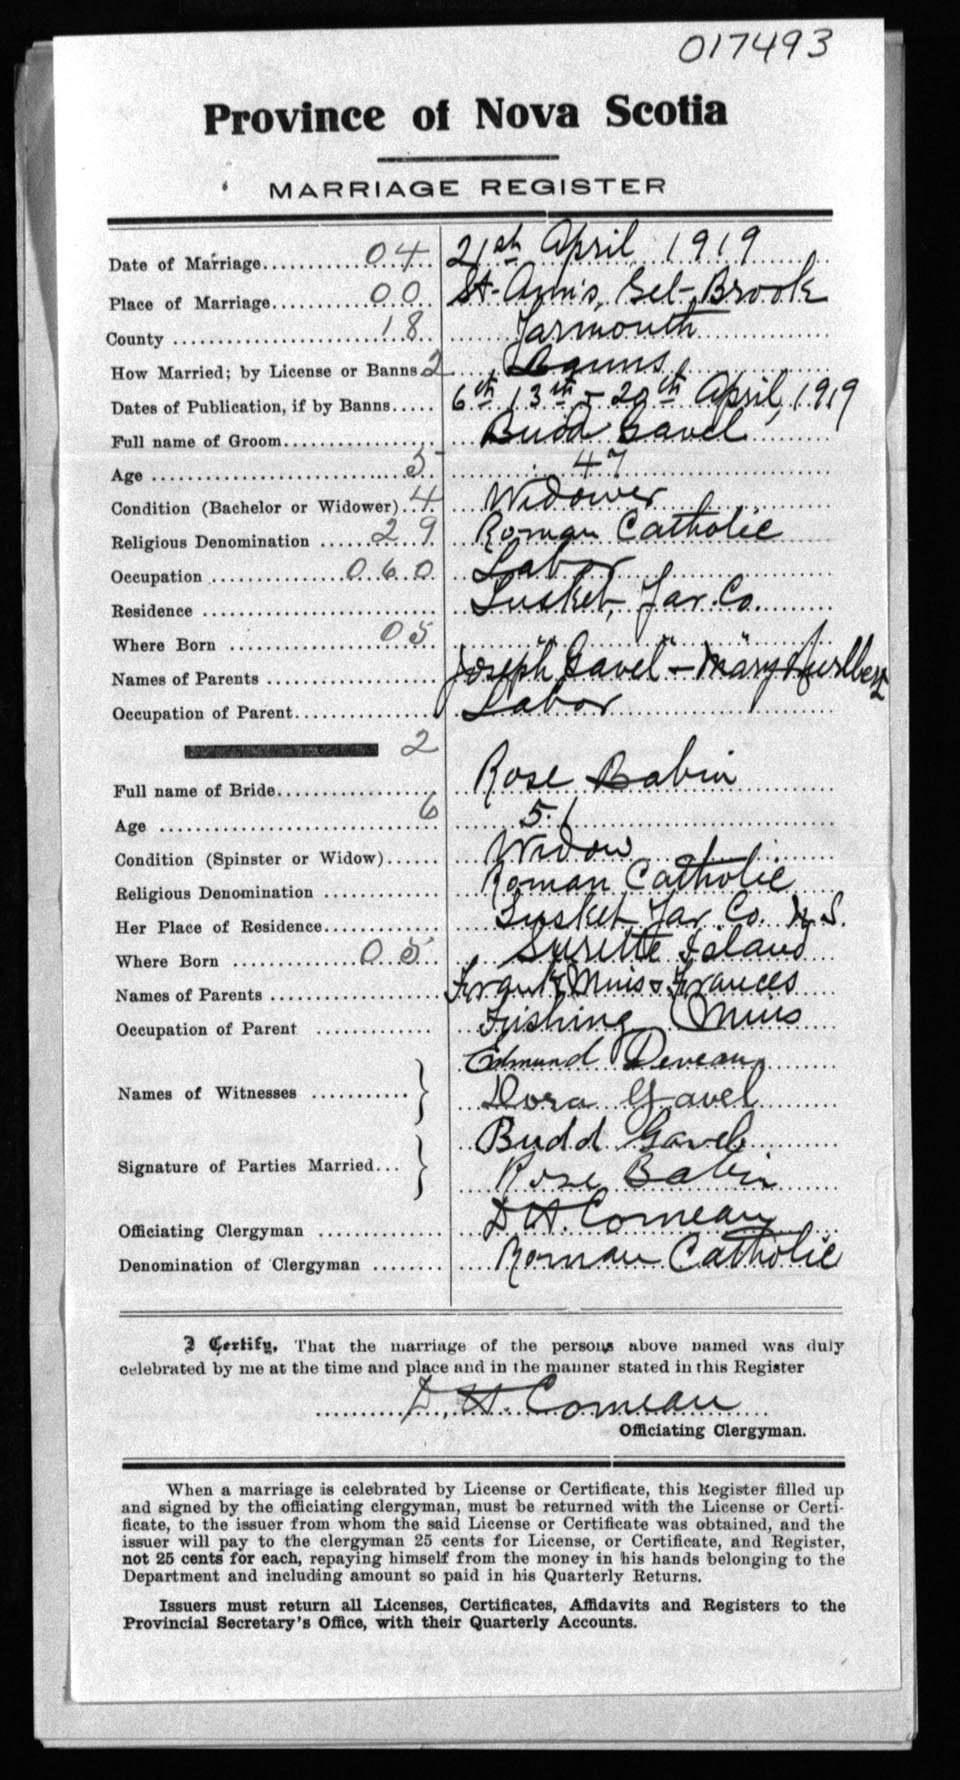 017493
Province of Nova Scotia
MARRIAGE REGISTER
Date of Marriage 04 21st April, 1919
Place of Marriage 00 St-Ann's, Eel-Brook
County 18 Yarmouth
How Married; by License or Banns 2 Banns
Dates of Publication, if by Banns 6th 13th - 20th April, 1919
Full name of Groom Budd Gavel
Age 5 47
Condition (Bachelor or Widower) 4 Widower
Religious Denomination 29 Roman Catholic
Occupation 060 Labor
Residence Tusket, Yar. Co.
Where Born 05 " " "
Names of Parents Joseph Gavel - Mary Hurlbert
Occupation of Parent Labor
2
Full name of Bride Rose Babin
Age 6 51
Condition (Spinster or Widow) Widow
Religious Denomination Roman Catholic
Her Place of Residence Tusket Yar. Co. N.S.
Where Born 05 Surette Island
Names of Parents Frank Muis & Frances
Occupation of Parent Fishing Muis
Edmund Deveau
Names of Witnesses
Dora Gavel
Budd Gavel
Signature of Parties Married
Rose Babin
Officiating Clergyman D.H. Comeau
Denomination of Clergyman Roman Catholic
I Certify, That the marriage of the persons above named was duly
celebrated by me at the time and place and in the manner stated in this Register
D. H. Comeau
Officiating Clergyman.
When a marriage is celebrated by License or Certificate, this Register filled up
and signed by the officiating clergyman, must be returned with the License or Certi-
ficate, to the issuer from whom the said License or Certificate was obtained, and the
issuer will pay to the clergyman 25 cents for License, or Certificate, and Register,
not 25 cents for each, repaying himself from the money in his hands belonging to the
Department and including amount so paid in his Quarterly Returns.
Issuers must return all Licenses, Certificates, Affidavits and Registers to the
Provincial Secretary's Office, with their Quarterly Accounts.